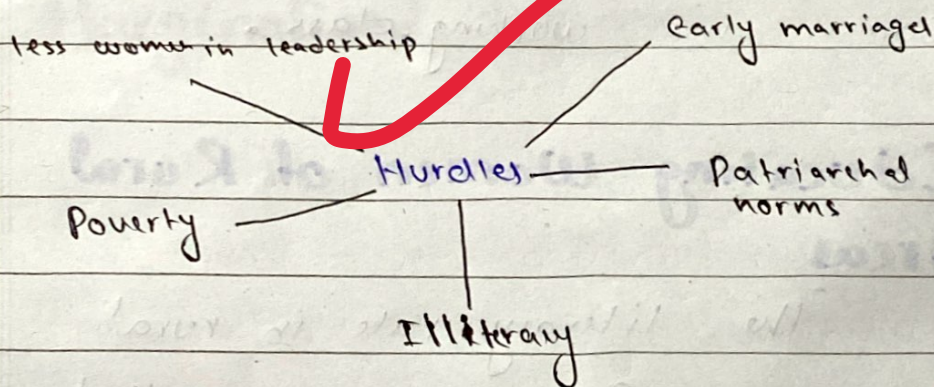 less women in leadership
early marriages
Hurdles
Patriarchal
norms
Poverty
Illiteracy